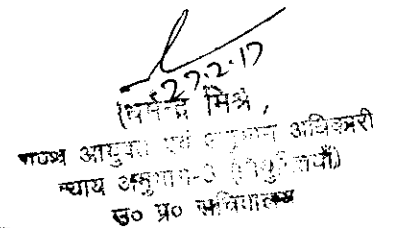 27.2.17
मिश्र,
आयुक्त एवं अनुभाग अधिकारी
न्याय अनुभाग-3 (नियुक्तियाँ)
उ० प्र० सचिवालय